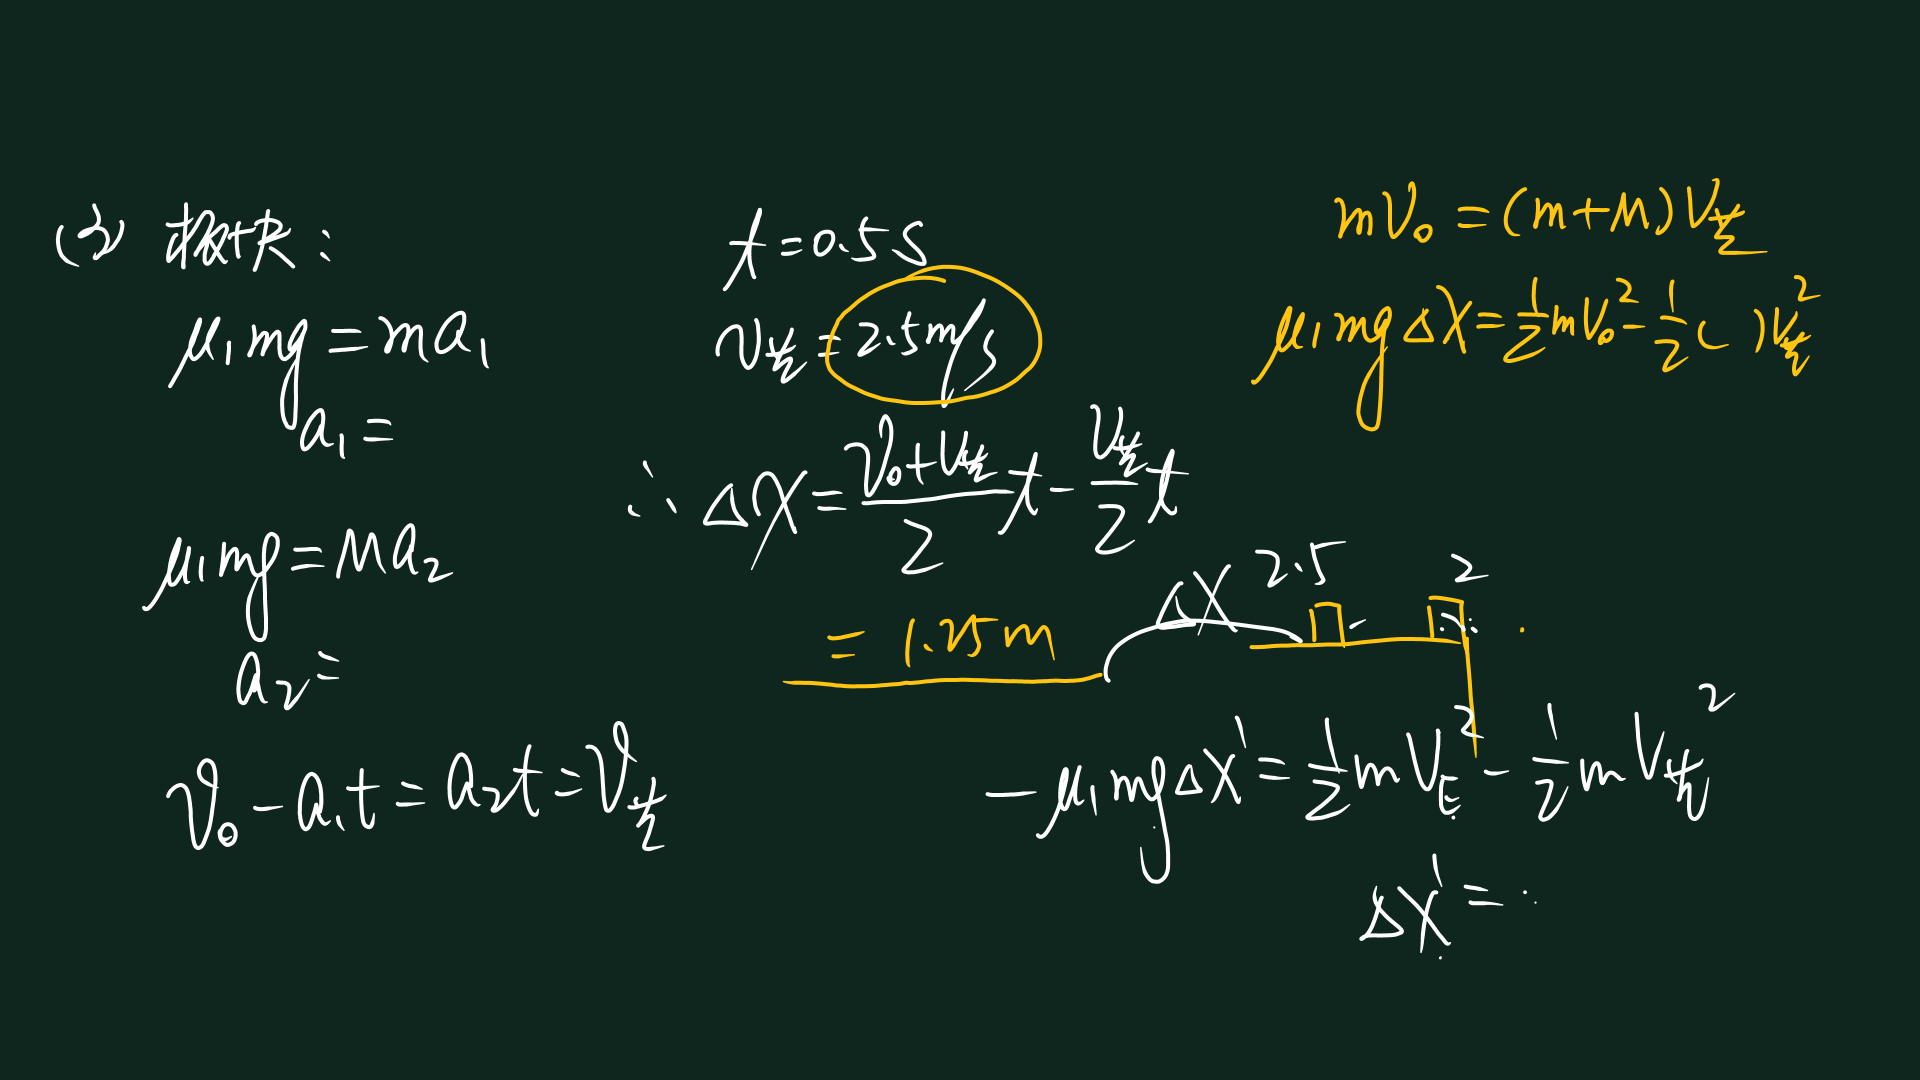 (3) 板块:
μ₁mg=ma₁
a₁=
μ₁mg=Ma₂
a₂=
v₀-a₁t=a₂t=v共
t=0.5s
v共=2.5m/s
∴ΔX=(v₀+v共)/2 t - v共/2 t
=1.25m
mv₀=(m+M)v共
μ₁mgΔX=½mv₀²-½( )v共²
ΔX 2.5 2
-μ₁mgΔX'=½mv_E²-½mv共²
ΔX'=